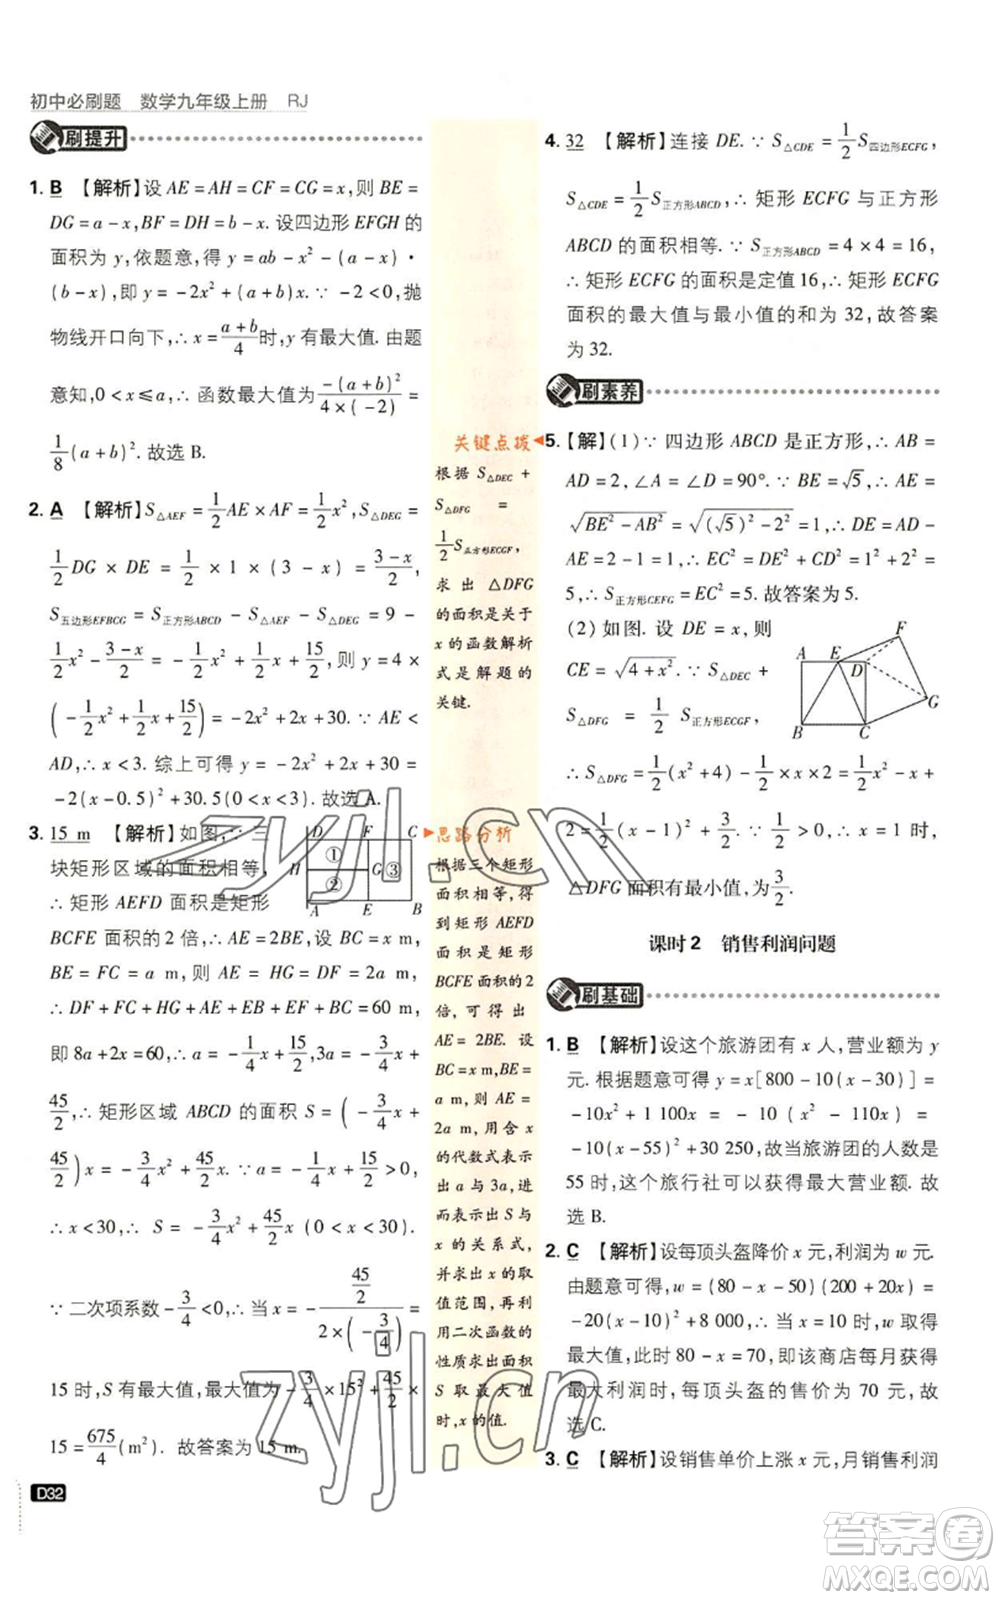 初中必刷题 数学九年级上册 RJ
刷提升
1. B 【解析】设 AE = AH = CF = CG = x,则 BE =
DG = a - x,BF = DH = b - x. 设四边形 EFGH 的
面积为 y,依题意,得 y = ab - x² - (a - x)·
(b - x),即 y = -2x² + (a + b)x. ∵ -2 < 0,抛
物线开口向下,∴ x = (a + b)/4 时,y 有最大值. 由题
意知,0 < x ≤ a,∴ 函数最大值为 -(a + b)²/(4 × (-2)) =
1/8 (a + b)². 故选 B.
2. A 【解析】S△AEF = 1/2 AE × AF = 1/2 x²,S△DEG =
1/2 DG × DE = 1/2 × 1 × (3 - x) = (3 - x)/2,
S五边形EFBCG = S正方形ABCD - S△AEF - S△DEG = 9 -
1/2 x² - (3 - x)/2 = -1/2 x² + 1/2 x + 15/2,则 y = 4 ×
(-1/2 x² + 1/2 x + 15/2) = -2x² + 2x + 30. ∵ AE <
AD,∴ x < 3. 综上可得 y = -2x² + 2x + 30 =
-2(x - 0.5)² + 30.5(0 < x < 3). 故选 A.
3. 15 m 【解析】如图,∵ 三
块矩形区域的面积相等,
∴ 矩形 AEFD 面积是矩形
BCFE 面积的 2 倍,∴ AE = 2BE. 设 BC = x m,
BE = FC = a m,则 AE = HG = DF = 2a m,
∴ DF + FC + HG + AE + EB + EF + BC = 60 m,
即 8a + 2x = 60,∴ a = -1/4 x + 15/2,3a = -3/4 x +
45/2,∴ 矩形区域 ABCD 的面积 S = (-3/4 x +
45/2)x = -3/4 x² + 45/2 x. ∵ a = -1/4 x + 15/2 > 0,
∴ x < 30,∴ S = -3/4 x² + 45/2 x (0 < x < 30).
∵ 二次项系数 -3/4 < 0,∴ 当 x = -(45/2)/(2 × (-3/4)) =
15 时,S 有最大值,最大值为 -3/4 × 15² + 45/2 ×
15 = 675/4 (m²). 故答案为 15 m.
D F C
H ① G ③
②
A E B
D32
关键点拨
根据 S△DEC +
S△DFG =
1/2 S正方形ECGF,
求出 △DFG
的面积是关于
x 的函数解析
式是解题的
关键.
思路分析
根据三个矩形
面积相等,得
到矩形 AEFD
面积是矩形
BCFE 面积的 2
倍,可得出
AE = 2BE. 设
BC = x m,BE =
a m,则 AE =
2a m,用含 x
的代数式表示
出 a 与 3a,进
而表示出 S 与
x 的关系式,
并求出 x 的取
值范围,再利
用二次函数的
性质求出面积
S 取最大值
时,x 的值.
4. 32 【解析】连接 DE. ∵ S△CDE = 1/2 S四边形ECFG,
S△CDE = 1/2 S正方形ABCD,∴ 矩形 ECFG 与正方形
ABCD 的面积相等. ∵ S正方形ABCD = 4 × 4 = 16,
∴ 矩形 ECFG 的面积是定值 16,∴ 矩形 ECFG
面积的最大值与最小值的和为 32,故答案
为 32.
刷素养
5. 【解】(1)∵ 四边形 ABCD 是正方形,∴ AB =
AD = CD = 2,∠A = ∠D = 90°. ∵ BE = √5,∴ AE =
√(BE² - AB²) = √((√5)² - 2²) = 1,∴ DE = AD -
AE = 2 - 1 = 1,∴ EC² = DE² + CD² = 1² + 2² =
5,∴ S正方形CEFG = EC² = 5. 故答案为 5.
(2) 如图. 设 DE = x,则
CE = √(4 + x²). ∵ S△DEC +
S△DFG = 1/2 S正方形ECGF,
∴ S△DFG = 1/2 (x² + 4) - 1/2 × x × 2 = 1/2 x² - x +
2 = 1/2 (x - 1)² + 3/2,∴ 当 x = 1 时,
△DFG 面积有最小值,为 3/2.
F
A E D
G
B C
课时 2 销售利润问题
刷基础
1. B 【解析】设这个旅游团有 x 人,营业额为 y
元. 根据题意可得 y = x[800 - 10(x - 30)] =
-10x² + 1 100x =
-10(x - 55)² + 30 250,故当旅游团的人数是
55 时,这个旅行社可以获得最大营业额. 故
选 B.
2. C 【解析】设每顶头盔降价 x 元,利润为 w 元.
由题意可得,w = (80 - x - 50)(200 + 20x) =
-20(x - 10)² + 8 000,∴ 当 x = 10 时,w 取得
最大值,此时 80 - x = 70,即该商店每月获得
最大利润时,每顶头盔的售价为 70 元,故
选 C.
3. C 【解析】设销售单价上涨 x 元,月销售利润
zyjl.cn
zyjl.cn
答案圈
MXQE.COM